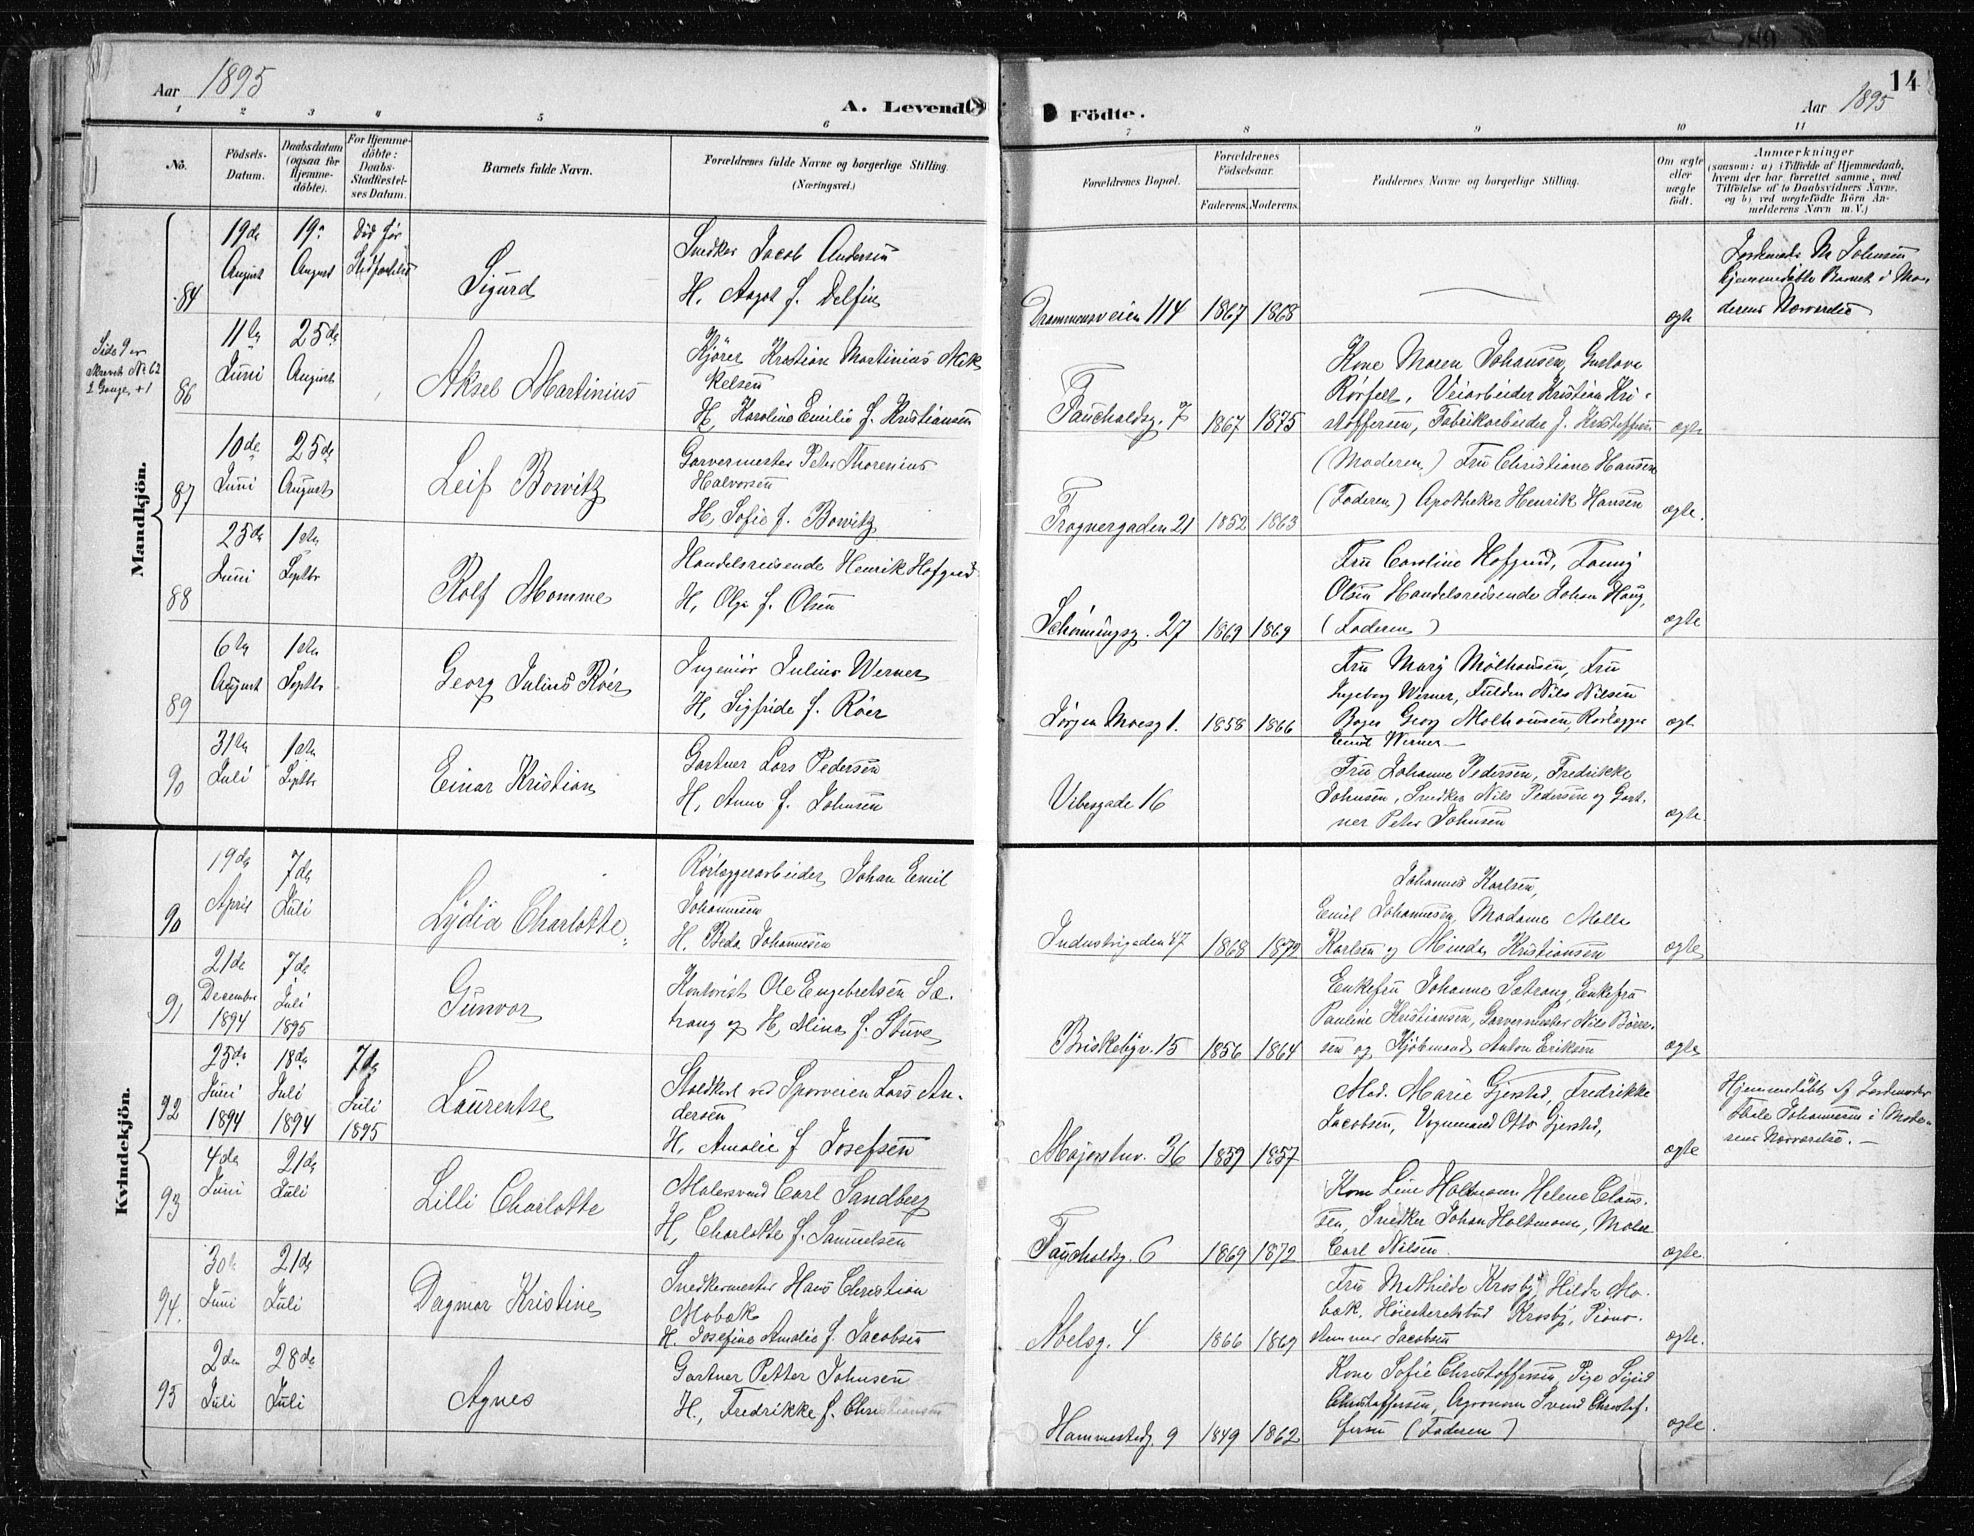 Aar 1895
A. Levende
1 2 3 4 5 6
No.
Födsels-Datum.
Daabsdatum (ogsaa for Hjemme-döbte).
For Hjemme-döbte: Daabs-Stadfæstel-ses Datum.
Barnets fulde Navn.
Forældrenes fulde Navne og borgerlige Stilling.
(Næringsvei.)
14
Födte.
Aar 1895
7 8 9 10 11
Forældrenes Bopæl.
Forældrenes Födselsaar.
Faderens. Moderens.
Faddernes Navne og borgerlige Stilling.
Om ægte eller uægte födt.
Anmærkninger
(saasom: a) i Tilfælde af Hjemmedaab,
hvem der har forrettet samme, med
Tilföielse af to Daabsvidners Navne,
og b) ved uægtefödte Börn An-
melderens Navn m. V.)
Mandkjön.
84
19de August
19de August
Död før Stadfæstelse
Sigurd
Snedker Jacob Andersen
H. Aagot f. Delfin
Drammensveien 114
1867 1868
ægte
Jordemoder M Johnsen
hjemmedöbte Barnet i Mo-
derens Nærværelse
Side 9 er
skrevet No 62
2 Gange, +1
86
11te Juni
25de August
Aksel Martinius
Kjører Kristian Martinius Mik-
kelsen
H. Karoline Emilie f. Kristiansen
Fauchaldsg. 7
1867 1875
Kone Maren Johansen, Gustava
Rørfelt, Veiarbeider Kristian Kri-
stoffersen, Fabrikarbeider J. Kristoffersen
ægte
87
10de Juni
25de August
Leif Bowitz
Garvermester Peter Thorenius
Halvorsen
H. Sofie f. Bowitz
Frognergaden 21
1852 1863
(Moderen) Fru Christiane Hansen
(Faderen) Apotheker Henrik Hansen
ægte.
88
25de Juni
1ste Septbr
Rolf Momme
Handelsreisende Henrik Hofgaard
H. Olga f. Olsen
Schøningsg. 27
1869 1869
Fru Caroline Hofgaard, Fanny
Olsen Handelsreisende Johan Haug,
(Faderen)
ægte
89
6te August
1ste Septbr
Georg Julius Röer
Ingeniør Julius Werner
H. Sigfride f. Röer
Jørgen Moesg 1.
1858 1866
Fru Marg Mølhausen, Fru
Ingeborg Werner, Nils Nilsen
Bager Georg Molhausen, Rørlægger
Emil Werner
ægte
90
31te Juli
1ste Septbr
Einar Kristian
Gartner Lars Pedersen
H. Anna f. Johnsen
Vibesgade 16
Fru Johanne Pedersen, Fredrikke
Johnsen, Snedker Nils Pedersen og Gart-
ner Peter Johnsen
ægte
Kvindekjön.
90
19de April
7de Juli
Lydia Charlotte
Rørlæggerarbeider Johan Emil
Johannesen
H. Beda Johannesen
Industrigaden 47
1868 1872
Johannes Karlsen,
Emil Johannesen, Madame Malla
Karlsen og Minda Kristiansen
ægte
91
21de December 1894
7de Juli 1895
Gunvor
Kontorist Ole Engebretsen Sæ-
trang og H. Mina f. Stuve
Briskebyv. 15
1856 1864
Enkefru Johanne Sætrang, Enkefru
Pauline Kristiansen, Garvermester Nils Børre-
sen og Kjøbmand Anton Eriksen
ægte
92
25de Juni 1894
18de Juli 1894
7de Juli 1895
Laurentse
Staldkarl ved Sporveien Lars An-
dersen
H. Amalie f. Josefsen
Majorstuv. 36
1859 1857
Mad. Marie Gjersted, Fredrikke
Jacobsen, Vognmand Otto Gjersted,
ægte
Hjemmedöbt af Jordemoder
Thale Johannesen i Mode-
rens Nærværelse. —
93
4de Juni
21de Juli
Lilli Charlotte
Malersvend Carl Sandberg
H. Charlotte f. Samuelsen
Fauchaldsg. 6
1869 1872
Kone Line Holtmann Helene Claus-
sen, Snedker Johan Holtmann, Maler
Carl Nilsen.
ægte.
94.
30te Juni
21de Juli
Dagmar Kristine
Snedkermester Hans Christian
Mobæk
H. Josefine Amalie f. Jacobsen
Abelsg. 4
1866 1869
Fru Mathilde Krosby, Hilda Mo-
bæk, Høiesteretsbud Krosby, Piano-
stemmer Jacobsen
ægte.
95
2den Juli
28de Juli
Agnes
Gartner Petter Johnsen
H., Fredrikke f. Christiansen
Hammerstadg. 9
1849 1862
Kone Sofie Christoffersen, Pige Sigrid
Christoffersen, Agronom Svend Christof-
fersen (Faderen)
ægte.